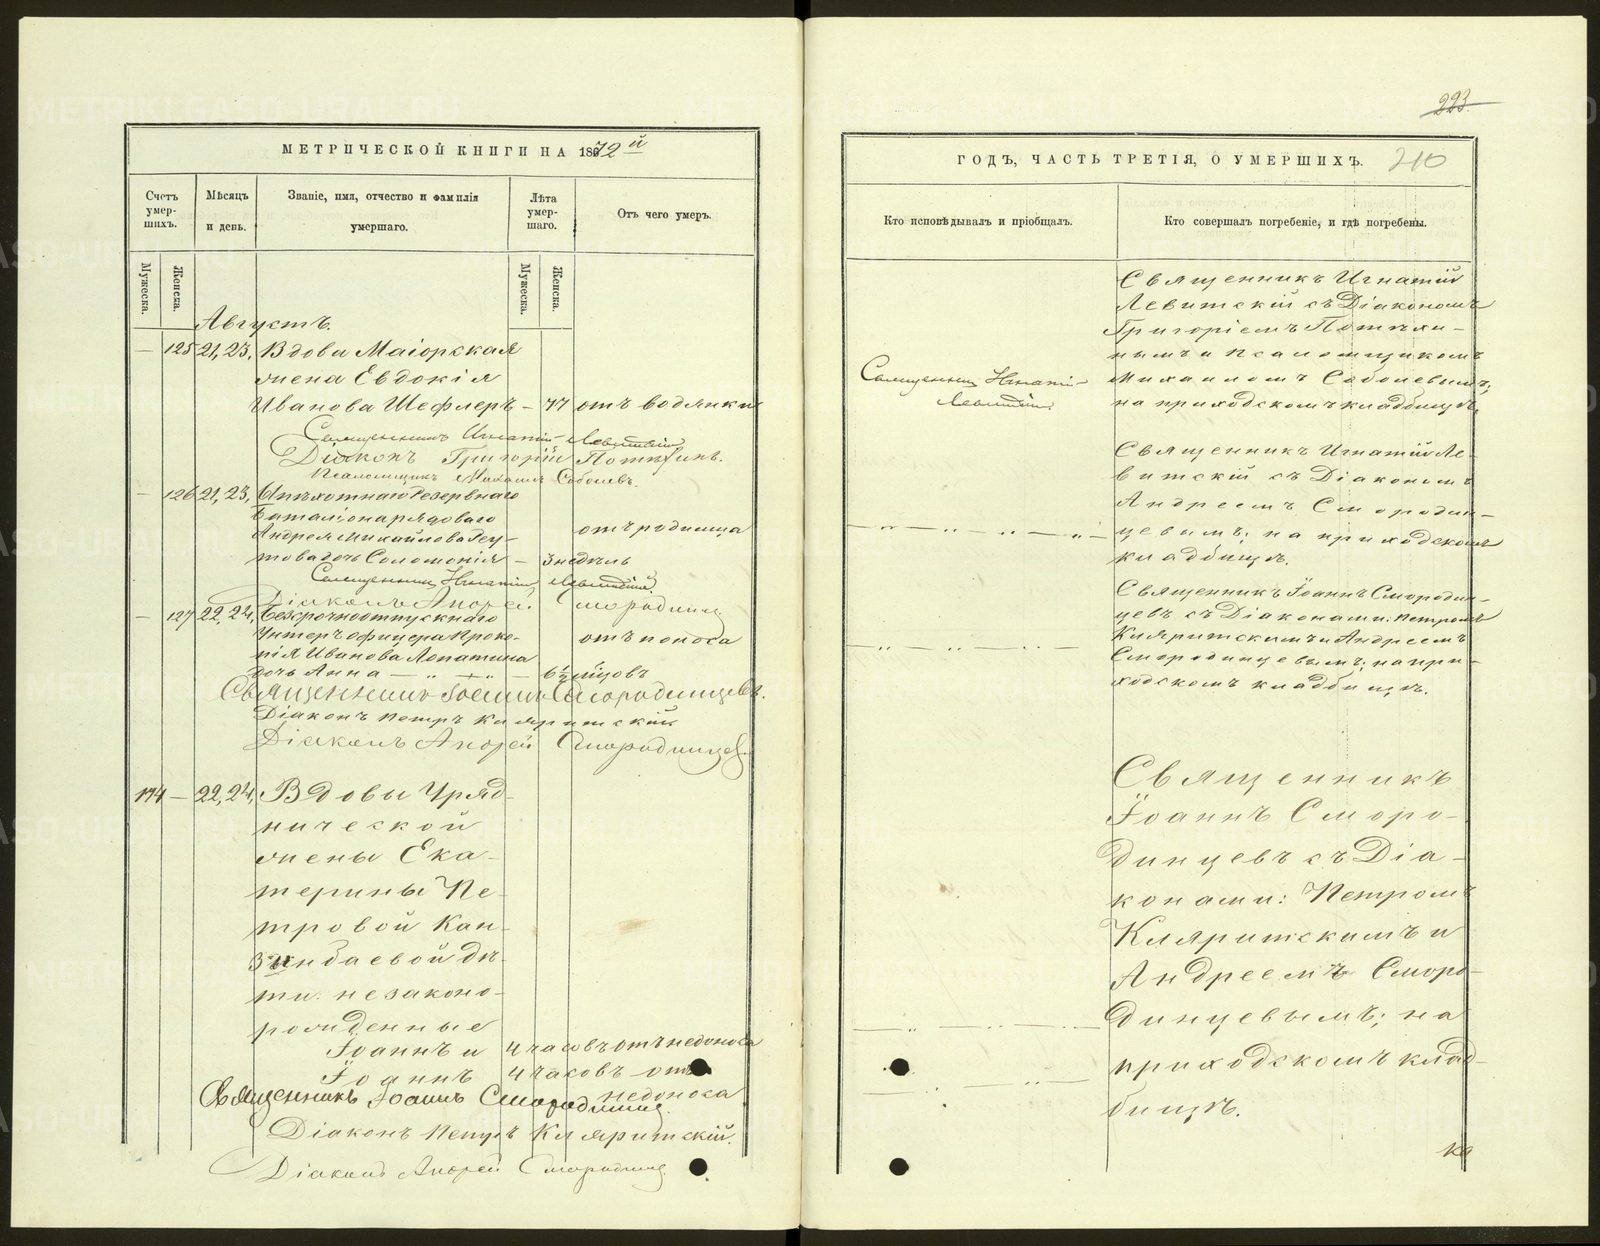 МЕТРИЧЕСКОЙ КНИГИ НА 1872й
Счетъ умер-шихъ.
Мѣсяцъ и день.
Званіе, имя, отчество и фамилія умершаго.
Лѣта умер-шаго.
Отъ чего умеръ.
Мужеска.
Женска.
Мужеска.
Женска.
Августъ.
— 125 21, 23, Вдова Маіорская
жена Евдокія
Иванова Шефлеръ — 77 отъ водянки
Священникъ Игнатій Левитскій
Діаконъ Григорій Потѣхинъ.
Псаломщикъ Михаилъ Соболевъ.
— 126 21, 23, Пѣхотнаго Резервнаго
баталіона рядоваго
Андрея Михайлова Реу- отъ родимца
това дочь Соломонія — 3 недѣль
Священникъ Игнатій Левитскій
Діаконъ Андрей Смородинц
— 127 22, 24, Безсрочноотпускнаго
Унтеръ офицера Проко- отъ поноса
пія Иванова Лопатина
дочь Анна — „ — „ — 6½ мѣсцовъ
Священникъ Іоаннъ Смородинцевъ.
Діаконъ Петръ Кляритскій
Діаконъ Андрей Смородинцев
174 — 22, 24, Вдовы Уряд-
нической
жены Ека-
терины Пе-
тровой Кан-
зинбаевой дѣ-
ти незаконо-
рожденные
Іоаннъ и 4 часовъ отъ недоноса
Іоаннъ 4 часовъ отъ
недоноса
Священникъ Іоаннъ Смородинц
Діаконъ Петръ Кляритскій.
Діаконъ Андрей Смородинц
223
ГОДЪ, ЧАСТЬ ТРЕТІЯ, О УМЕРШИХЪ. 210
Кто исповѣдывалъ и пріобщалъ.
Кто совершалъ погребеніе, и гдѣ погребены.
Священникъ Игнатій
Левитскій съ Діакономъ
Григоріемъ Потѣхи-
нымъ и псаломщикомъ
Священникъ Игнатій
Михаиломъ Соболевымъ;
Левитскій
на приходскомъ кладбищѣ.
Священникъ Игнатій Ле-
витскій съ Діакономъ
Андреемъ Смородин-
цевымъ; на приходскомъ
кладбищѣ.
Священникъ Іоаннъ Смородин-
цевъ съ Діаконами: Петромъ
Кляритскимъ и Андреемъ
Смородинцевымъ; на при-
ходскомъ кладбищѣ.
Священникъ
Іоаннъ Сморо-
динцевъ съ Діа-
конами: Петромъ
Кляритскимъ и
Андреемъ Сморо-
динцевымъ; на
приходскомъ клад-
бищѣ.